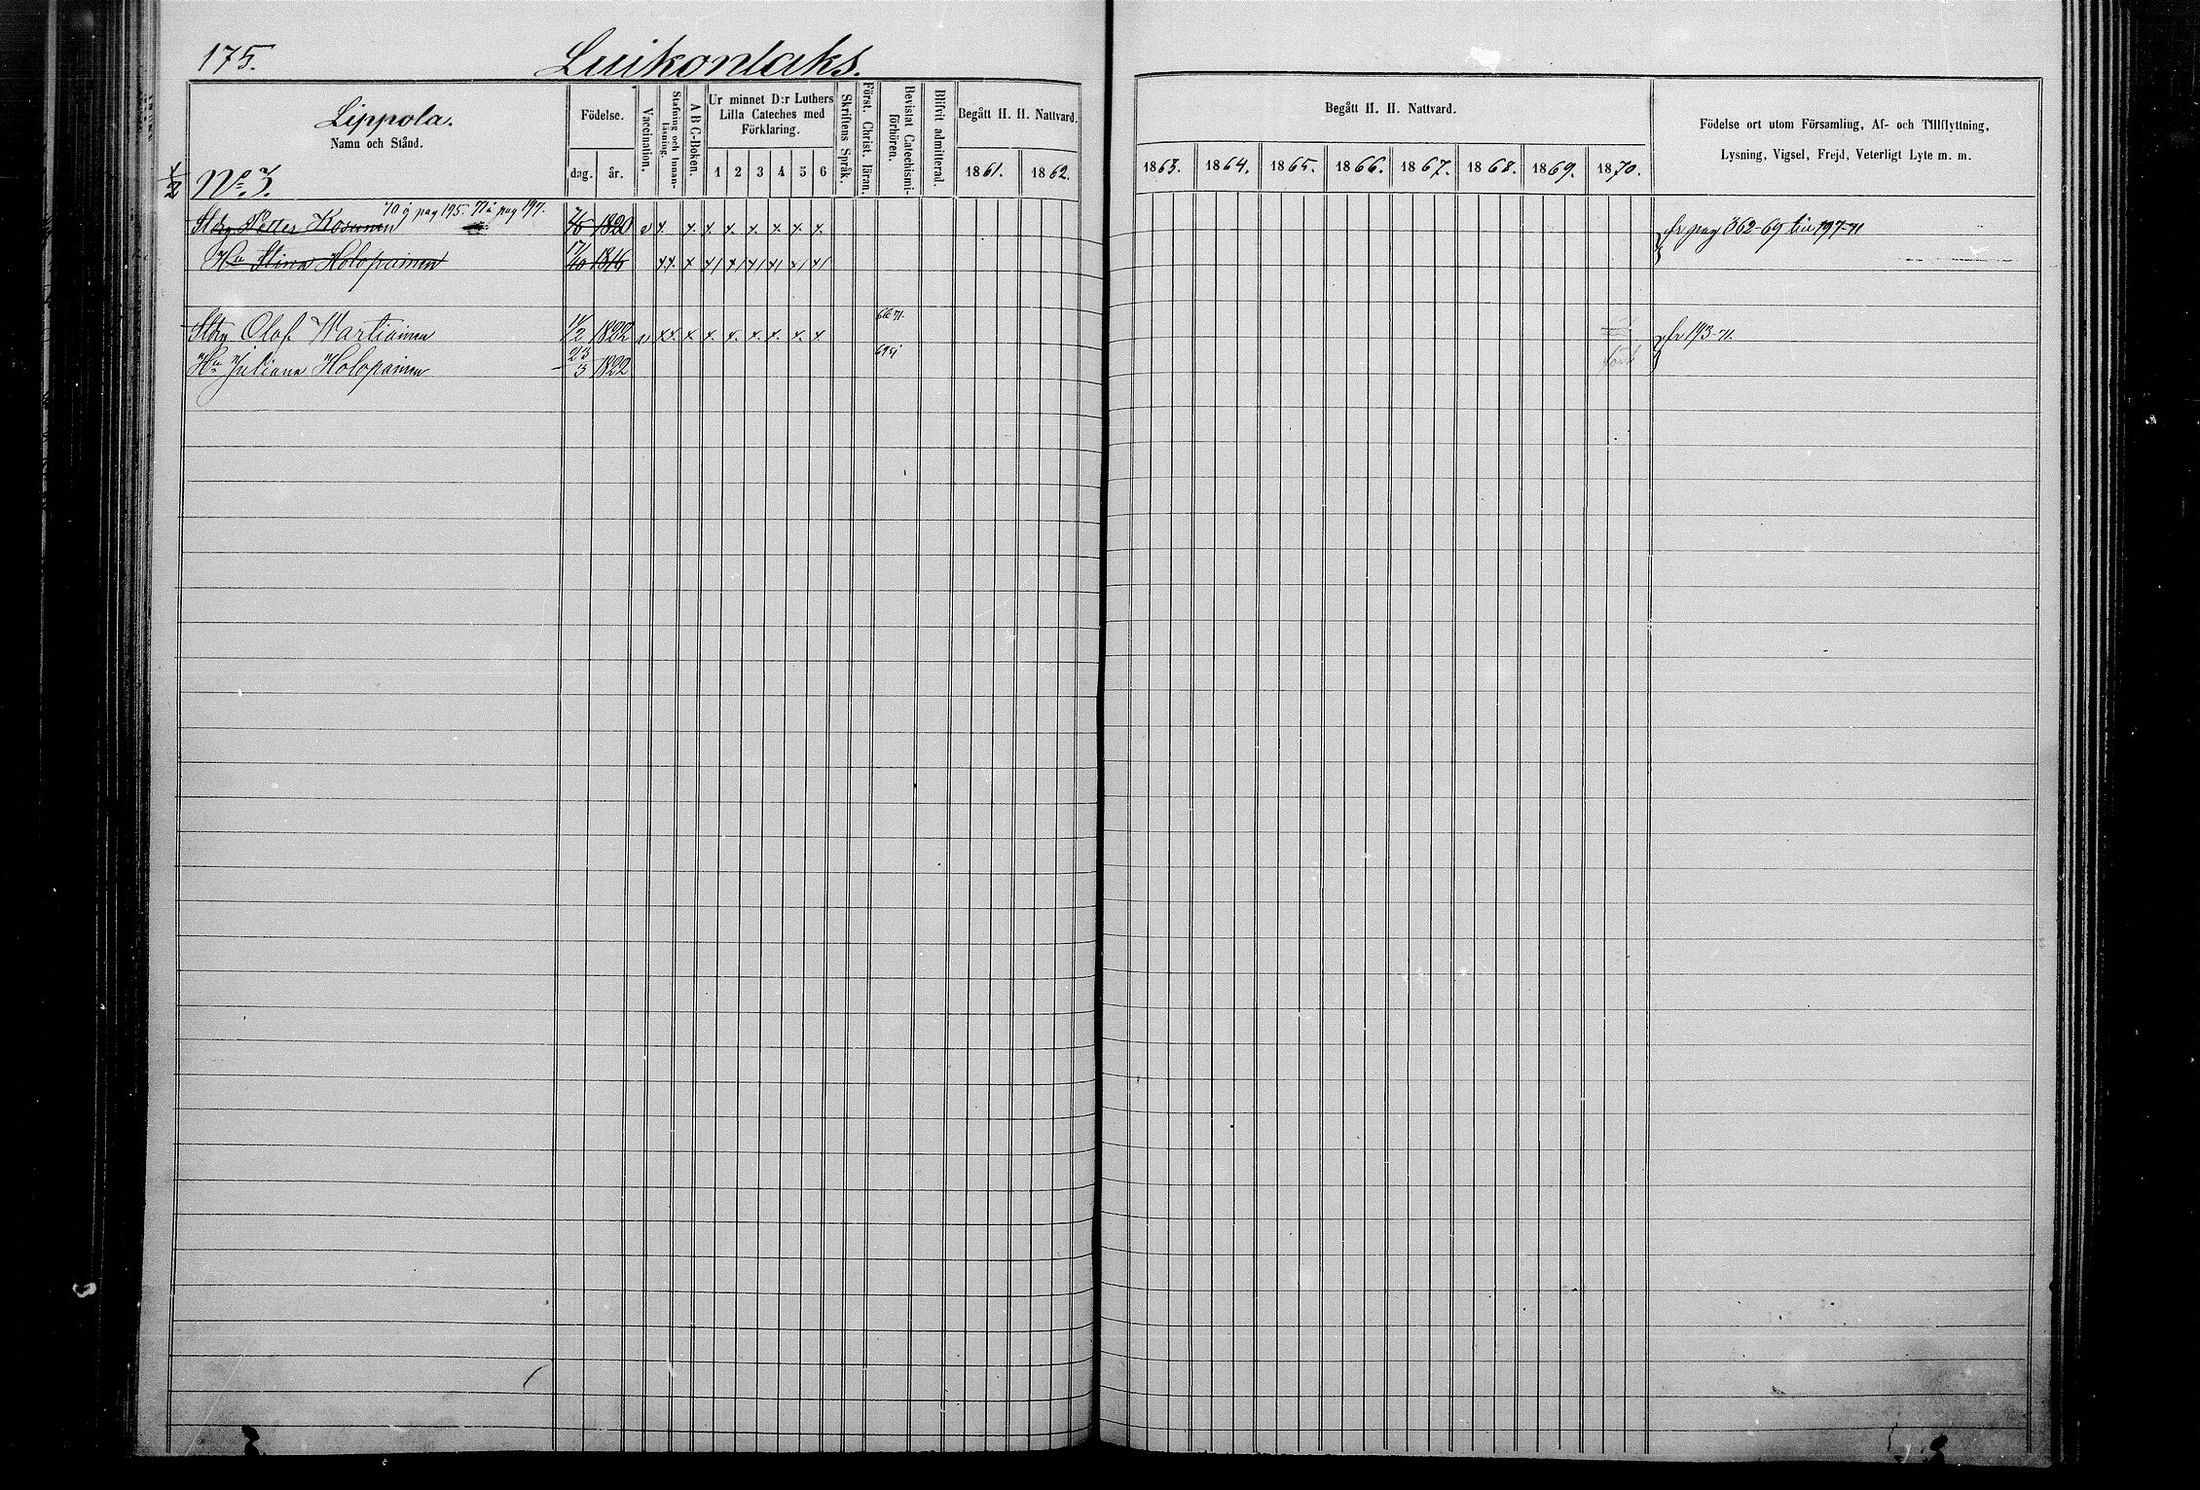 175. Luikonlaks.
Lippola.
Namn och Stånd.
1/2 No. 3.
Födelse.
dag. år.
Vaccination.
Stafning och Innanläsning.
A B C-Boken.
Ur minnet D:r Luthers Lilla Cateches med Förklaring.
1 2 3 4 5 6
Skriftens Språk.
Först. Christ. läran.
Bevistat Catechismiförhören.
Blifvit admitterad.
Begått H. H. Nattvard.
1861. 1862.
Begått H. H. Nattvard.
1863. 1864. 1865. 1866. 1867. 1868. 1869. 1870.
Födelse ort utom Församling, Af- och Tillflyttning,
Lysning, Vigsel, Frejd, Veterligt Lyte m. m.
70 å pag 195. 71 å pag 197.
Petter Kosunen 1820 v x x x x. x. x. x. x. fr pag 362-69 197-71
Hu Stina Holopainen 17/10 1816 xx. x x/ x/ x/ x/ x/ x/
Olof Wartiainen 1822 v xx. x. x. x. x. x. x. x fr 193-71.
Hu Juliana Holopainen 23/3 1822